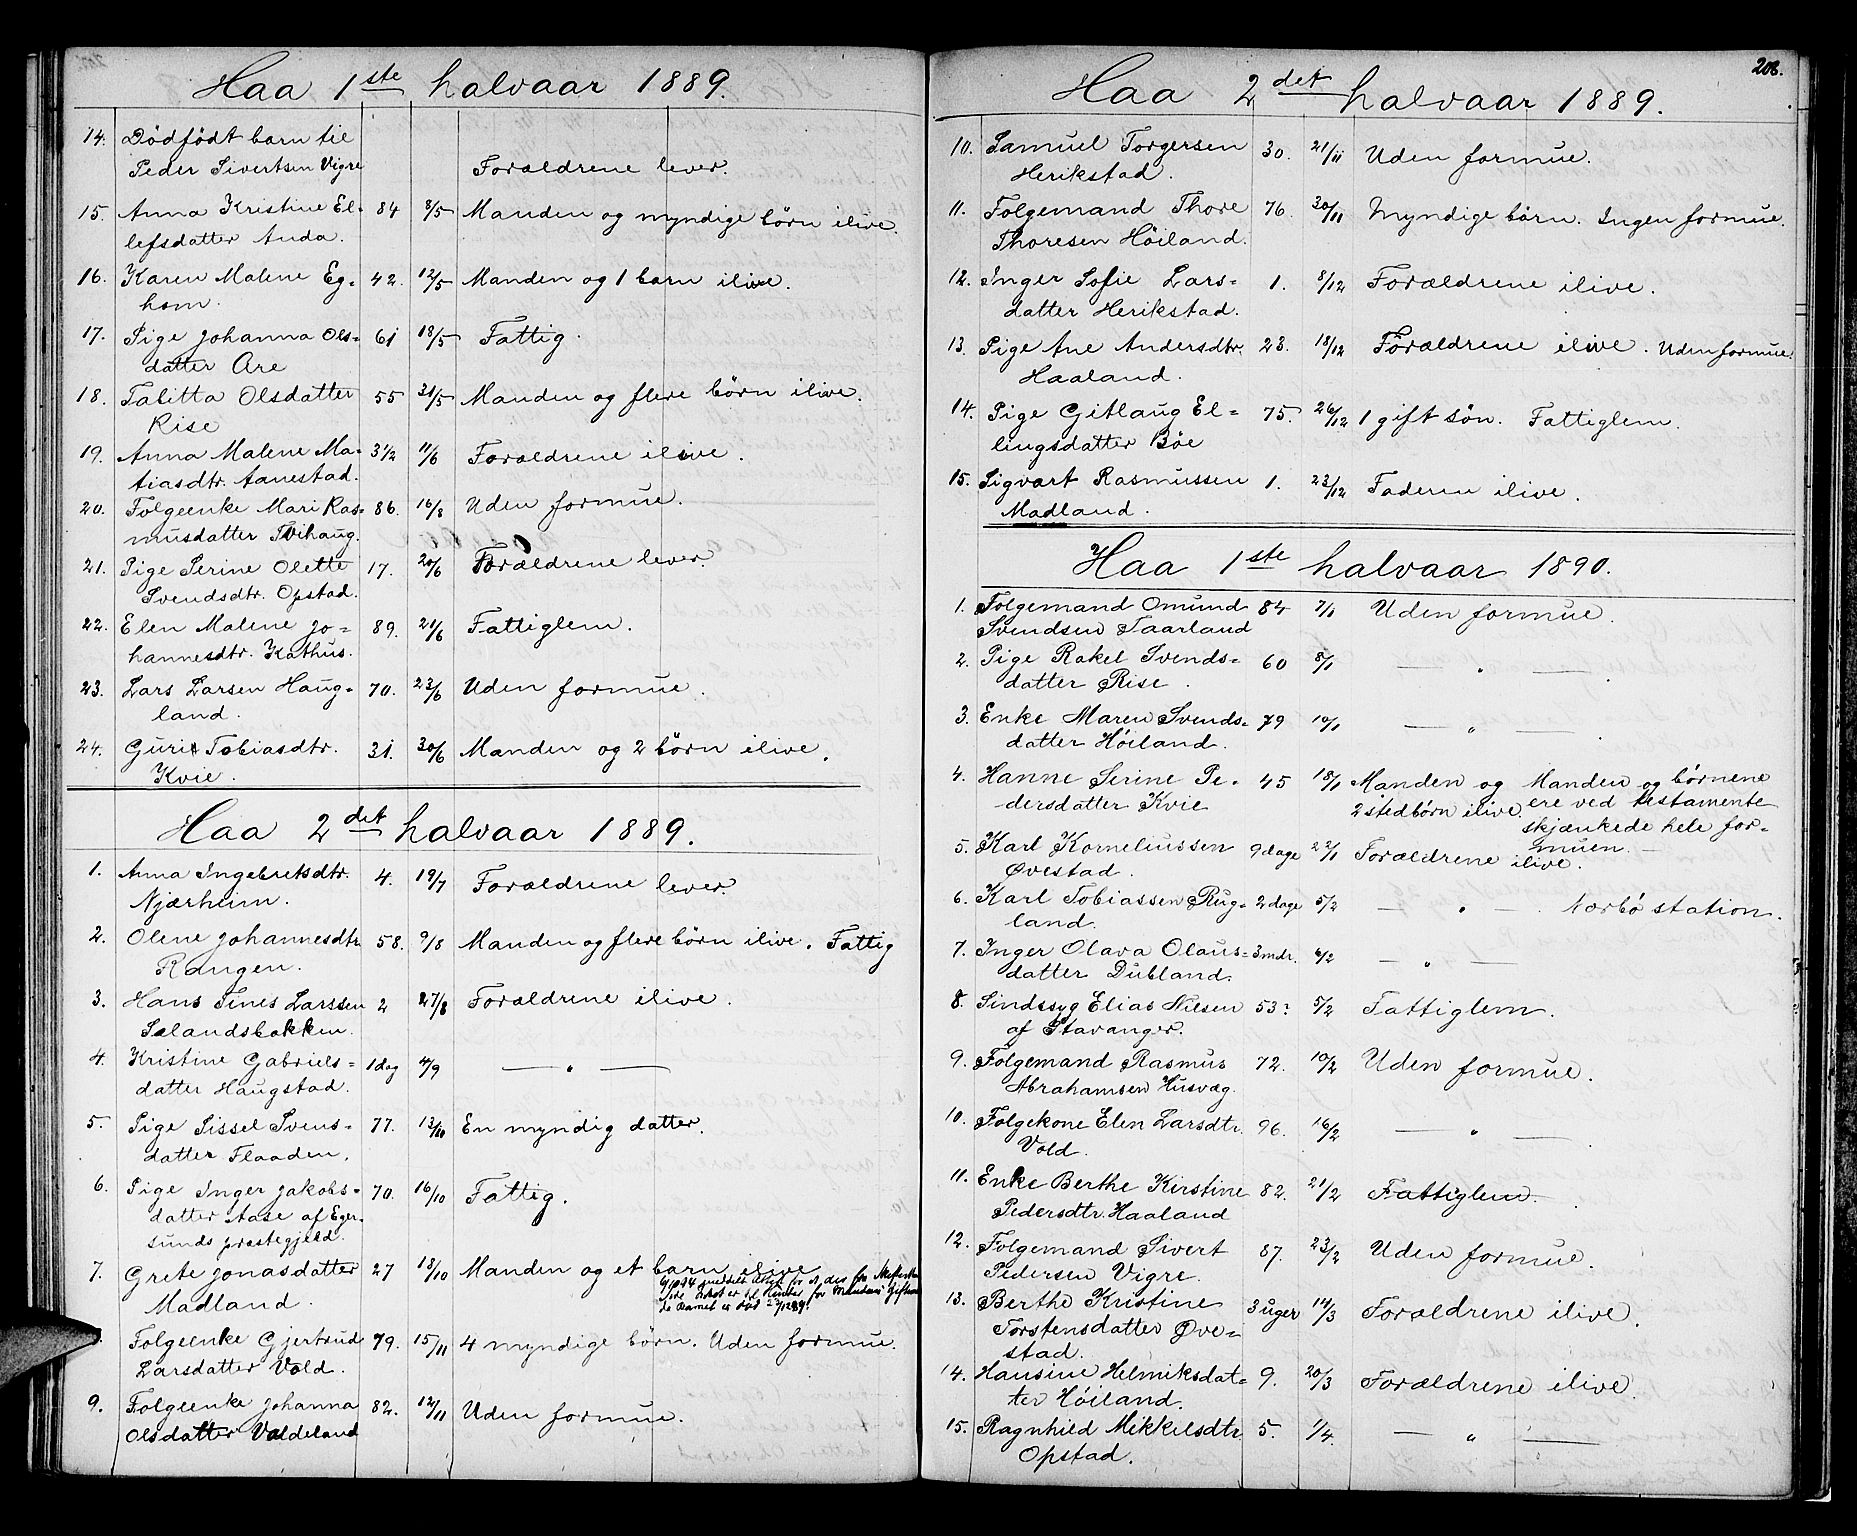 Haa 1ste halvaar 1889.
14. Dödfödt barn til
Peder Sivertsen Vigre Forældrene lever.
15. Anna Kristine El- 84 8/5 Manden og myndige börn ilive.
lefsdatter Anda.
16. Karen Malene Eg- 42. 12/5 Manden og 1 barn ilive.
hom.
17. Pige Johanna Ols- 61 18/5 Fattig.
datter Are
18. Tabitta Olsdatter 55 31/5 Manden og flere börn ilive.
Rise
19. Anna Malene Ma- 3 1/2 11/6 Forældrene ilive.
tiasdtr. Aanestad.
20. Folgeenke Mari Ras- 86. 16/8 Uden formue.
musdatter Tvihaug.
21. Pige Serine Olette 17. 20/6 Forældrene lever.
Svendsdtr. Opstad.
22. Elen Malene Jo- 89. 21/6 Fattiglem.
hannesdtr. Kathus.
23. Lars Larsen Haug- 70. 23/6 Uden formue.
land.
24. Guri Tobiasdtr. 31. 30/6 Manden og 2 börn ilive.
Kvie.
Haa 2det halvaar 1889.
1. Anna Ingebretsdtr. 4. 19/7 Forældrene lever.
Njærheim.
2. Olene Johannesdtr 58. 9/8 Manden og flere börn ilive. Fattig
Rangen.
3. Hans Tines Larssen 2 27/8 Forældrene ilive.
Salandsbakken.
4. Kristine Gabriels- 1 dag 4/9 — " —
datter Haugstad.
5. Pige Sissel Svens- 77. 13/10 En myndig datter.
datter Flaaden.
6. Pige Inger Jakobs- 70. 16/10 Fattig.
datter Aase af Eger-
sunds præstegjeld.
7. Grete Jonasdatter 27 18/10 Manden og et barn ilive
Madland.
Folgeenke Gjertrud 79. 15/11 4 myndige börn. Uden formue.
Larsdatter Vold.
9. Folgeenke Johanna 82. 12/11 Uden formue.
Olsdatter Valdeland
206.
Haa 2det halvaar 1889.
10. Samuel Torgersen 30. 21/11 Uden formue.
Herikstad.
11. Folgemand Thore 76. 30/11 Myndige börn. Ingen formue.
Thoresen Höiland.
12. Inger Sofie Lars- 1. 8/12 Forældrene ilive.
datter Herikstad.
13. Pige Ane Andersdtr. 23. 18/12 Forældrene ilive. Uden formue.
Haaland.
14. Pige Gitlaug El- 75. 26/12 1 gift sön. Fattiglem.
lingsdatter Böe
15. Sigvart Rasmussen 1. 23/12 Faderen ilive.
Madland.
Haa 1ste halvaar 1890.
1. Folgemand Omund 84 7/1 Uden formue.
Svendsen Taarland
2. Pige Rakel Svends- 60 8/1 — " —
datter Rise.
3. Enke Maren Svends- 79 10/1 — " —
datter Höiland.
4. Hanne Serine Pe- 45 18/1 Manden og Manden og börnene
dersdatter Kvie 2 stedbörn ilive. ere ved testamente
skjænkede hele for-
muen.
5. Karl Korneliussen 9 dage 22/1 Forældrene ilive.
Øvestad.
6. Karl Tobiassen Rug- 2 dage 5/2 — " — . Nærbö station.
land.
7. Inger Olava Olaus- 3 mdr. 6/2 — " —
datter Dubland.
8. Sindssyg Elias Nilsen 53? 5/2 Fattiglem.
af Stavanger.
9. Folgemand Rasmus 72. 10/2 Uden formue.
Abrahamsen Husvæg.
10. Folgekone Elen Larsdtr. 96. 16/2 — " —
Vold.
11. Enke Berthe Kirstine 82. 21/2 Fattiglem.
Pedersdtr. Haaland
12. Folgemand Sivert 87. 23/2 Uden formue.
Pedersen Vigre.
13. Berthe Kristine 3 uger 14/3 Forældrene ilive.
Torstensdatter Øve-
stad.
14. Hansine Helmiksdat- 9. 20/3 Forældrene ilive.
ter Höiland.
15. Ragnhild Mikkelsdtr. 5. 1/4. — " —
Opstad.